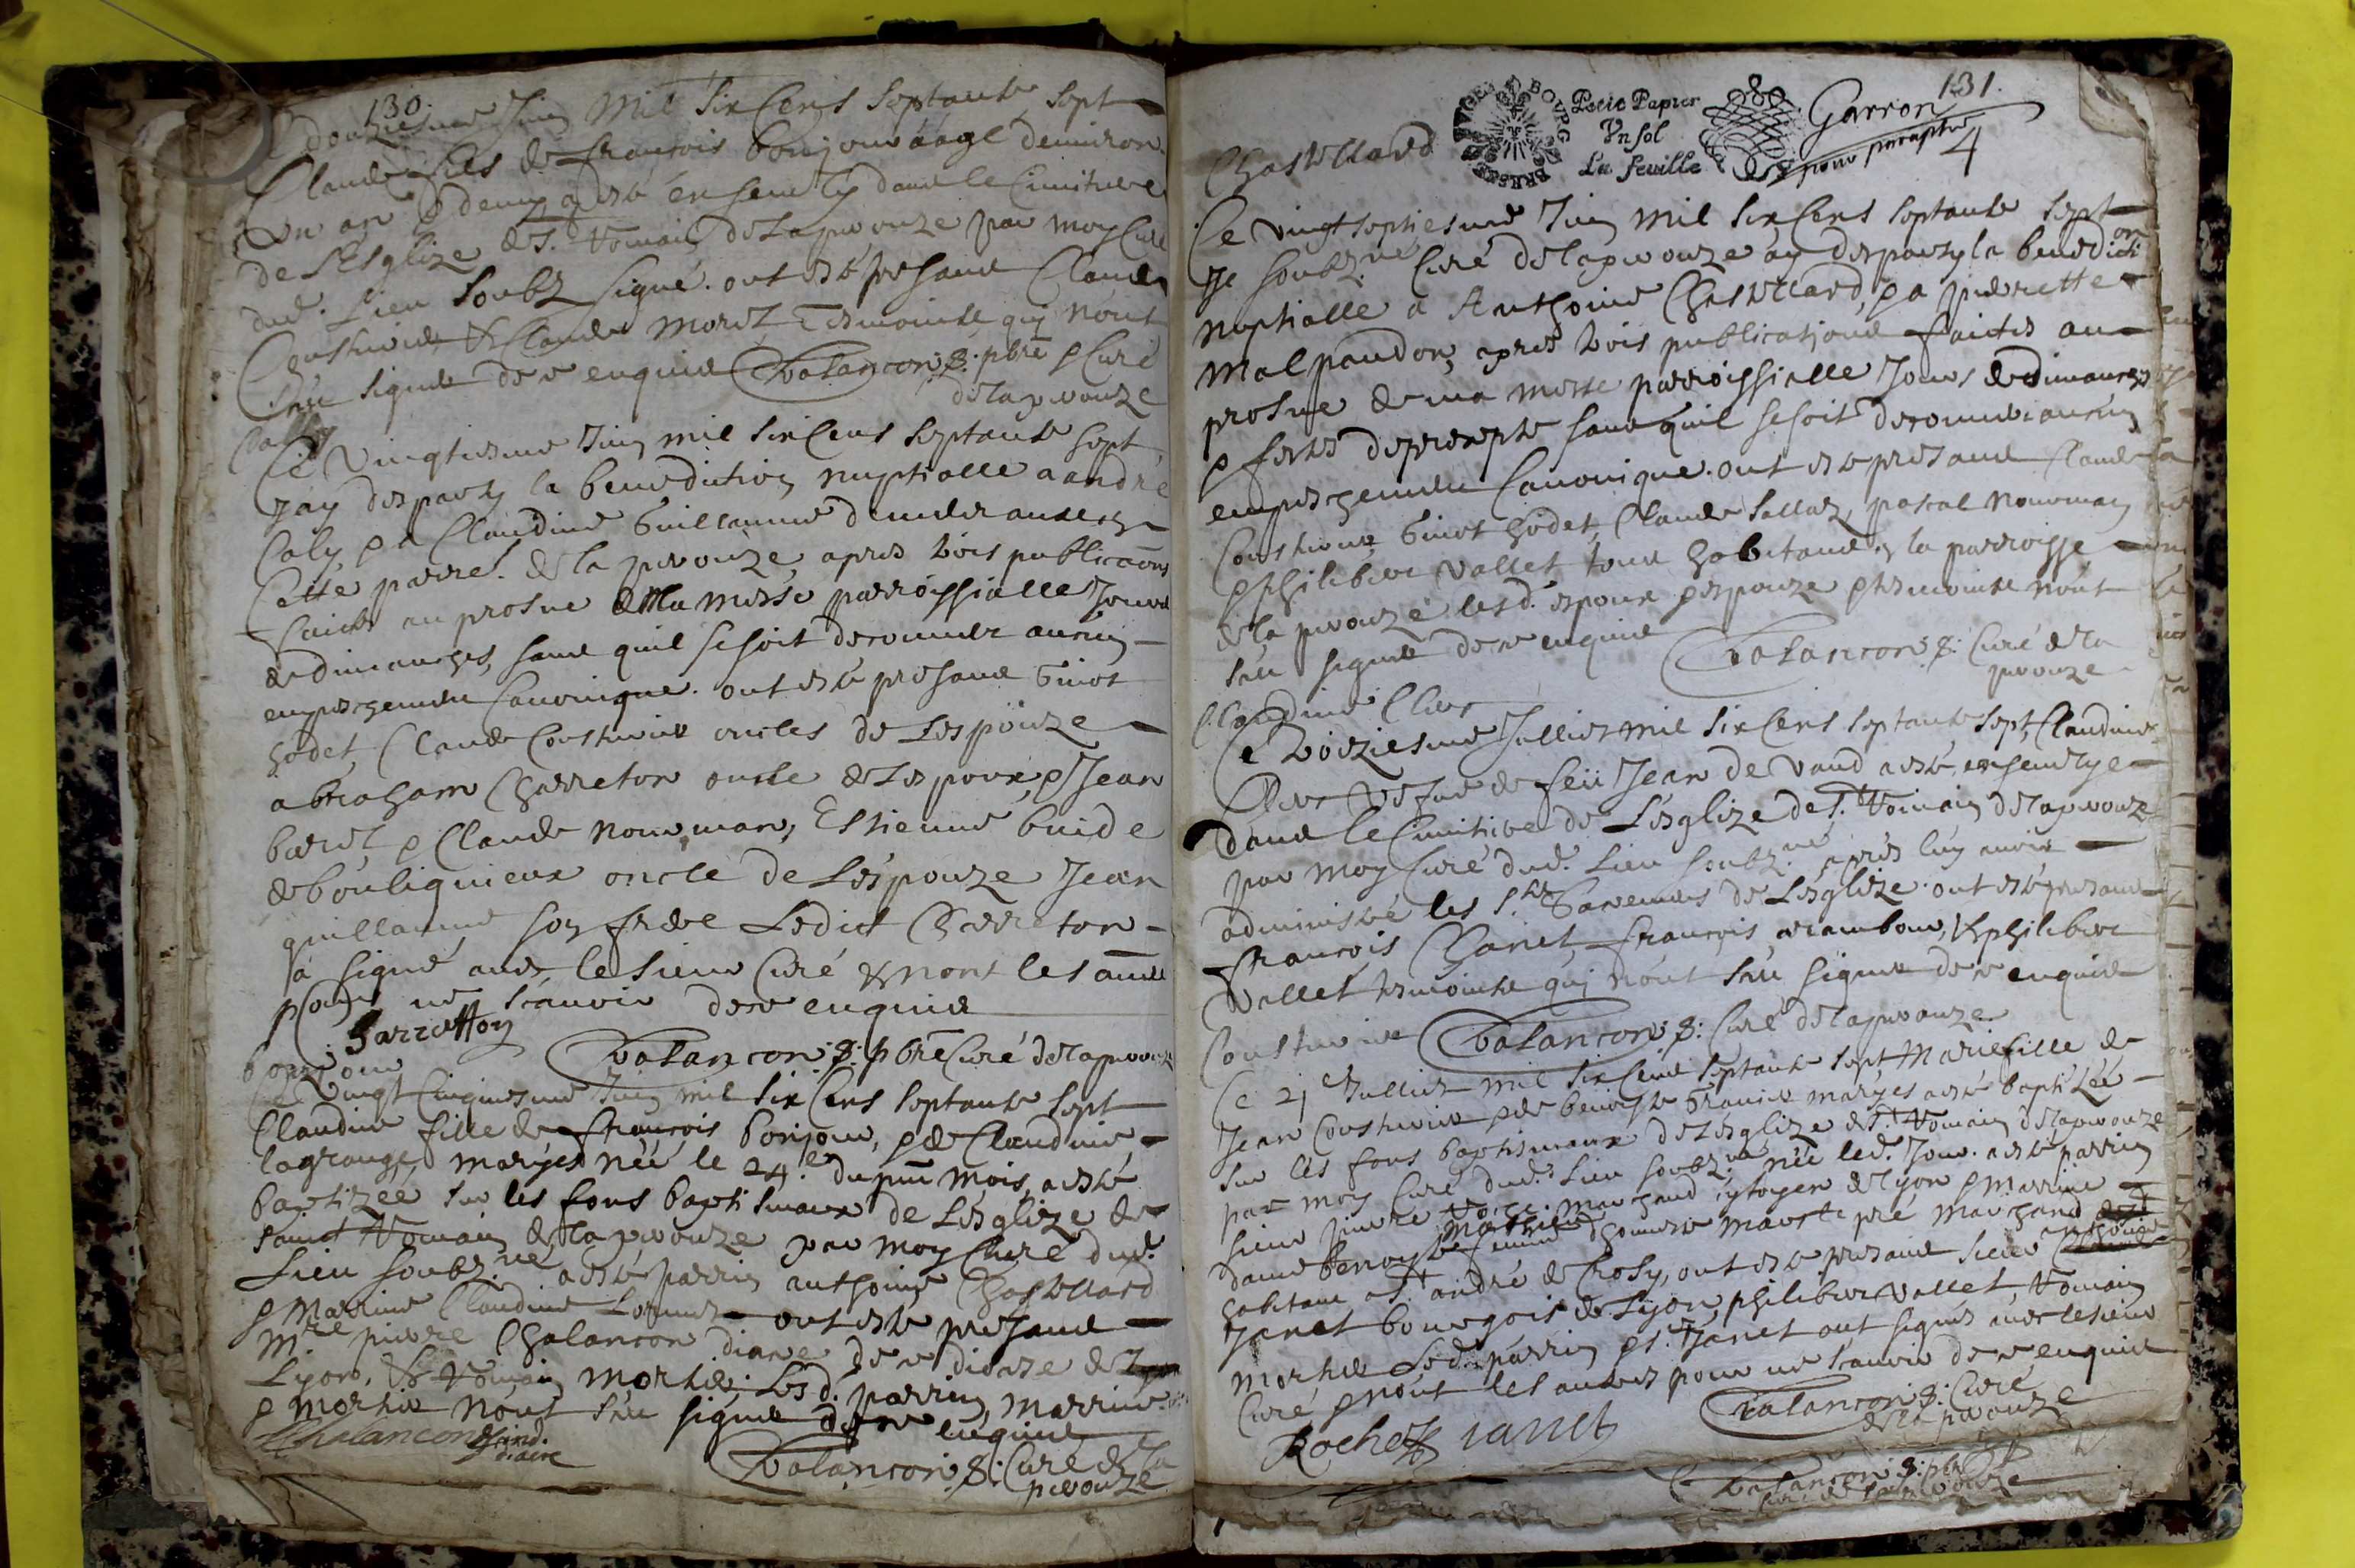 130.
Ce douziesme Juin Mil Six Cens Septante sept
Claude fils de francois bonjour aagé denuiron
Un an & demy a esté enseuely dans le Cimitiere
de L'Esglize de St. Romain de Laperouze par moy Curé
dud. Lieu Soubz signé. ont esté presans Claude
Cousturier & Claude Morel Tesmoints qui nont
sceu signer de ce enquis Chalancon S: pbre & Curé
de la perouze
Caly
Ce vingtiesme Juin mil six Cens Septante sept
J'ay desparty la benediction nuptialle a andré
Caly & a Claudine Guillaume demeurants en
Cette parre. de la perouze apres trois publicaons
faictes au prosne de Ma messe parroissialle Jours
de dimanches, sans quil se soit decouuert aucun
empeschement Canonique. ont esté presans Guiot
godet, Claude Cousturier oncles de Lespouze
abraham Charreton oncle de Lespoux & Jean
borel & Claude nouuman, Estienne buide
de bouligneux oncle de Lespouze Jean
guillaume son frere Ledict Charreton
a signé auec le Sieur Curé & nont les autres
pour ne scauoir de ce enquis
Charretton
Chalancon S: pbre Curé de laperouze
bonjour
Ce Vingt Cinquiesme Juin mil Six Cens Septante sept
Claudine fille de francois bonjour, & de Claudine
lagrange mariés née le 24e. du pnt mois, a esté
baptizée sur les fons baptismaux de Lesglize de
Sainct Romain de la perouze par moy Curé dud.
Lieu soubz.né a esté parrin anthoine Chastellard
& Marrine Claudine ont esté presans
Mre pierre Chalancon diacre de ce dioceze de
Lyon, & Romain mortier. Lesd. parrin, marrine
& mortier nont sceu signer de ce enquis
Chalancon diacre
Chalancon S: Curé de la
perouze
131.
BOVRG BRESSE
Petit Papier
Vn sol
La feuille
Garron
pour paraphe
4
Chastellard
Ce vingt septiesme Juin mil six Cens septante sept
Je soubz.né Curé de Laperouze ay desparty la benediction
nuptialle a Anthoine Chastellard, & a pierrette
Malpaudon, apres trois publications faictes au
prosne de ma messe parroissialle Jours de dimanches
& festes de precepte sans quil se soit decouuert aucun
empeschement Canonique. ont esté presans Claude
Cousturier Guiot godet, Claude Sallaz, pascal nouuman
& philiber vallet tous habitans en la parroisse
de la perouze lesd. espoux & espouze & tesmoints nont
sceu signer de ce enquis Chalancon S: Curé de la
perouze
Claudine Cler
Ce troiziesme Jullier mil six Cens septante sept, Claudine
Cler vefue de feu Jean de Vaud a esté enseuelye
dans le Cimitiere de Lesglize de St. Romain de laperouze
par moy Curé dud. Lieu soubz.né apres luy auoir
administré les Sts Sacrements de Lesglize. ont esté presans
francois Chanel, francois & philiber
Vallet tesmoints qui nont sceu signer de ce enquis
Cousturier Chalancon S: Curé de laperouze
Ce 21 Jullier mil six Cens septante sept Marie fille de
Jean Cousturier & de benoiste mariés a esté baptizée
sur les fons baptismaux de Lesglize de St. Romain de laperouze
par moy Curé dud. Lieu soubz.né née led. Jour. a esté parrin
sieur pierre marchand cytoyen de Lyon & marrine
dame benoyste femme dhonnorable pré marchand
habitant a St. andré de Chosy, ont esté presans sieur anthoine
Janet bourgois de Lyon, philiber vallet, Romain
mortier Led. parrin & Sr. Janet ont signés auec le sieur
Curé & nont les autres pour ne scauoir de ce enquis
Rochetz Janet
Chalancon S: Curé
de la perouze
Chalancon S: pbre